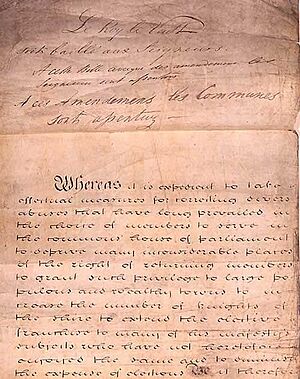 Le Roy le Veult
Soit baillé aux Seigneurs
A ceste Bille avecque des amendemens les
Seigneurs sont assentus
A ces Amendemens les Communes
sont assentuz
Whereas it is expedient to take
effectual measures for correcting divers
abuses that have long prevailed in
the choice of members to serve in
the commons house of parliament
to deprive many inconsiderable places
of the right of returning members
to grant such privilege to large po
pulous and wealthy towns to in
crease the number of knights of
the shire to extend the elective
franchise to many of his majesty's
subjects who have not heretofore
enjoyed the same and to diminish
the expense of elections Be it therefore